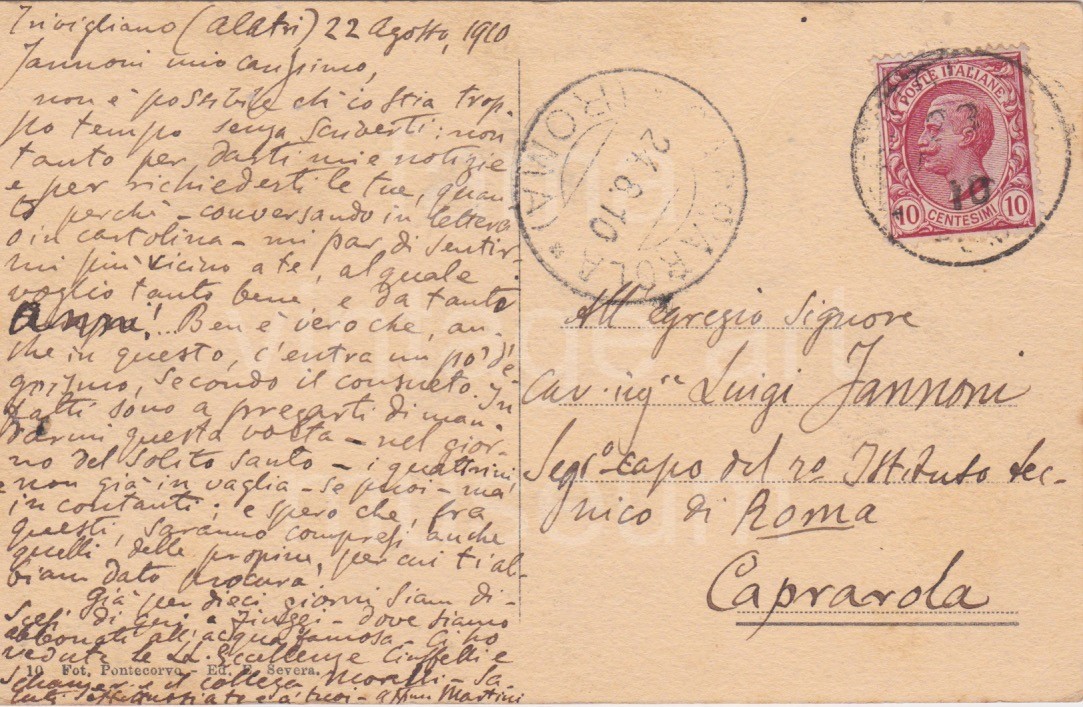 Trivigliano (Alatri) 22 Agosto, 1910
Jannoni mio carissimo,
non è possibile ch'io stia trop-
po tempo senza scriverti: non
tanto per darti mie notizie
e per richiederti le tue, quan-
to perchè - conversando in lettera
o in cartolina - mi par di sentir-
mi più vicino a te, al quale
voglio tanto bene, e da tanto
anni!... Ben è vero che, an-
che in questo, c'entra un po' d'e-
goismo, secondo il consueto. In
fatti sono a pregarti di man-
darmi questa volta - nel gior-
no del solito santo - i quattrini,
non già in vaglia - se puoi - ma
in contanti: e spero che, fra
questi, saranno compresi anche
quelli delle propine, per cui ti ab-
biam dato procura.
Già per dieci giorni siam di-
scesi di qui a Fiuggi - dove siamo
abbonati all'acqua famosa. Ci ho
vedute le LL. Eccellenze Ciuffelli e
e il collega Moralli - Sa
e a' tuoi - aff.mo Martini
10 Fot. Pontecorvo - Ed. E. Severa.
CAPRAROLA * (ROMA)
24.8.10
POSTE ITALIANE
10 CENTESIMI 10
23
10
All'egregio Signore
cav. ing.re Luigi Jannoni
Segr.o capo del r.o Istituto tec-
nico di Roma
Caprarola
tanta
vintage art
museum